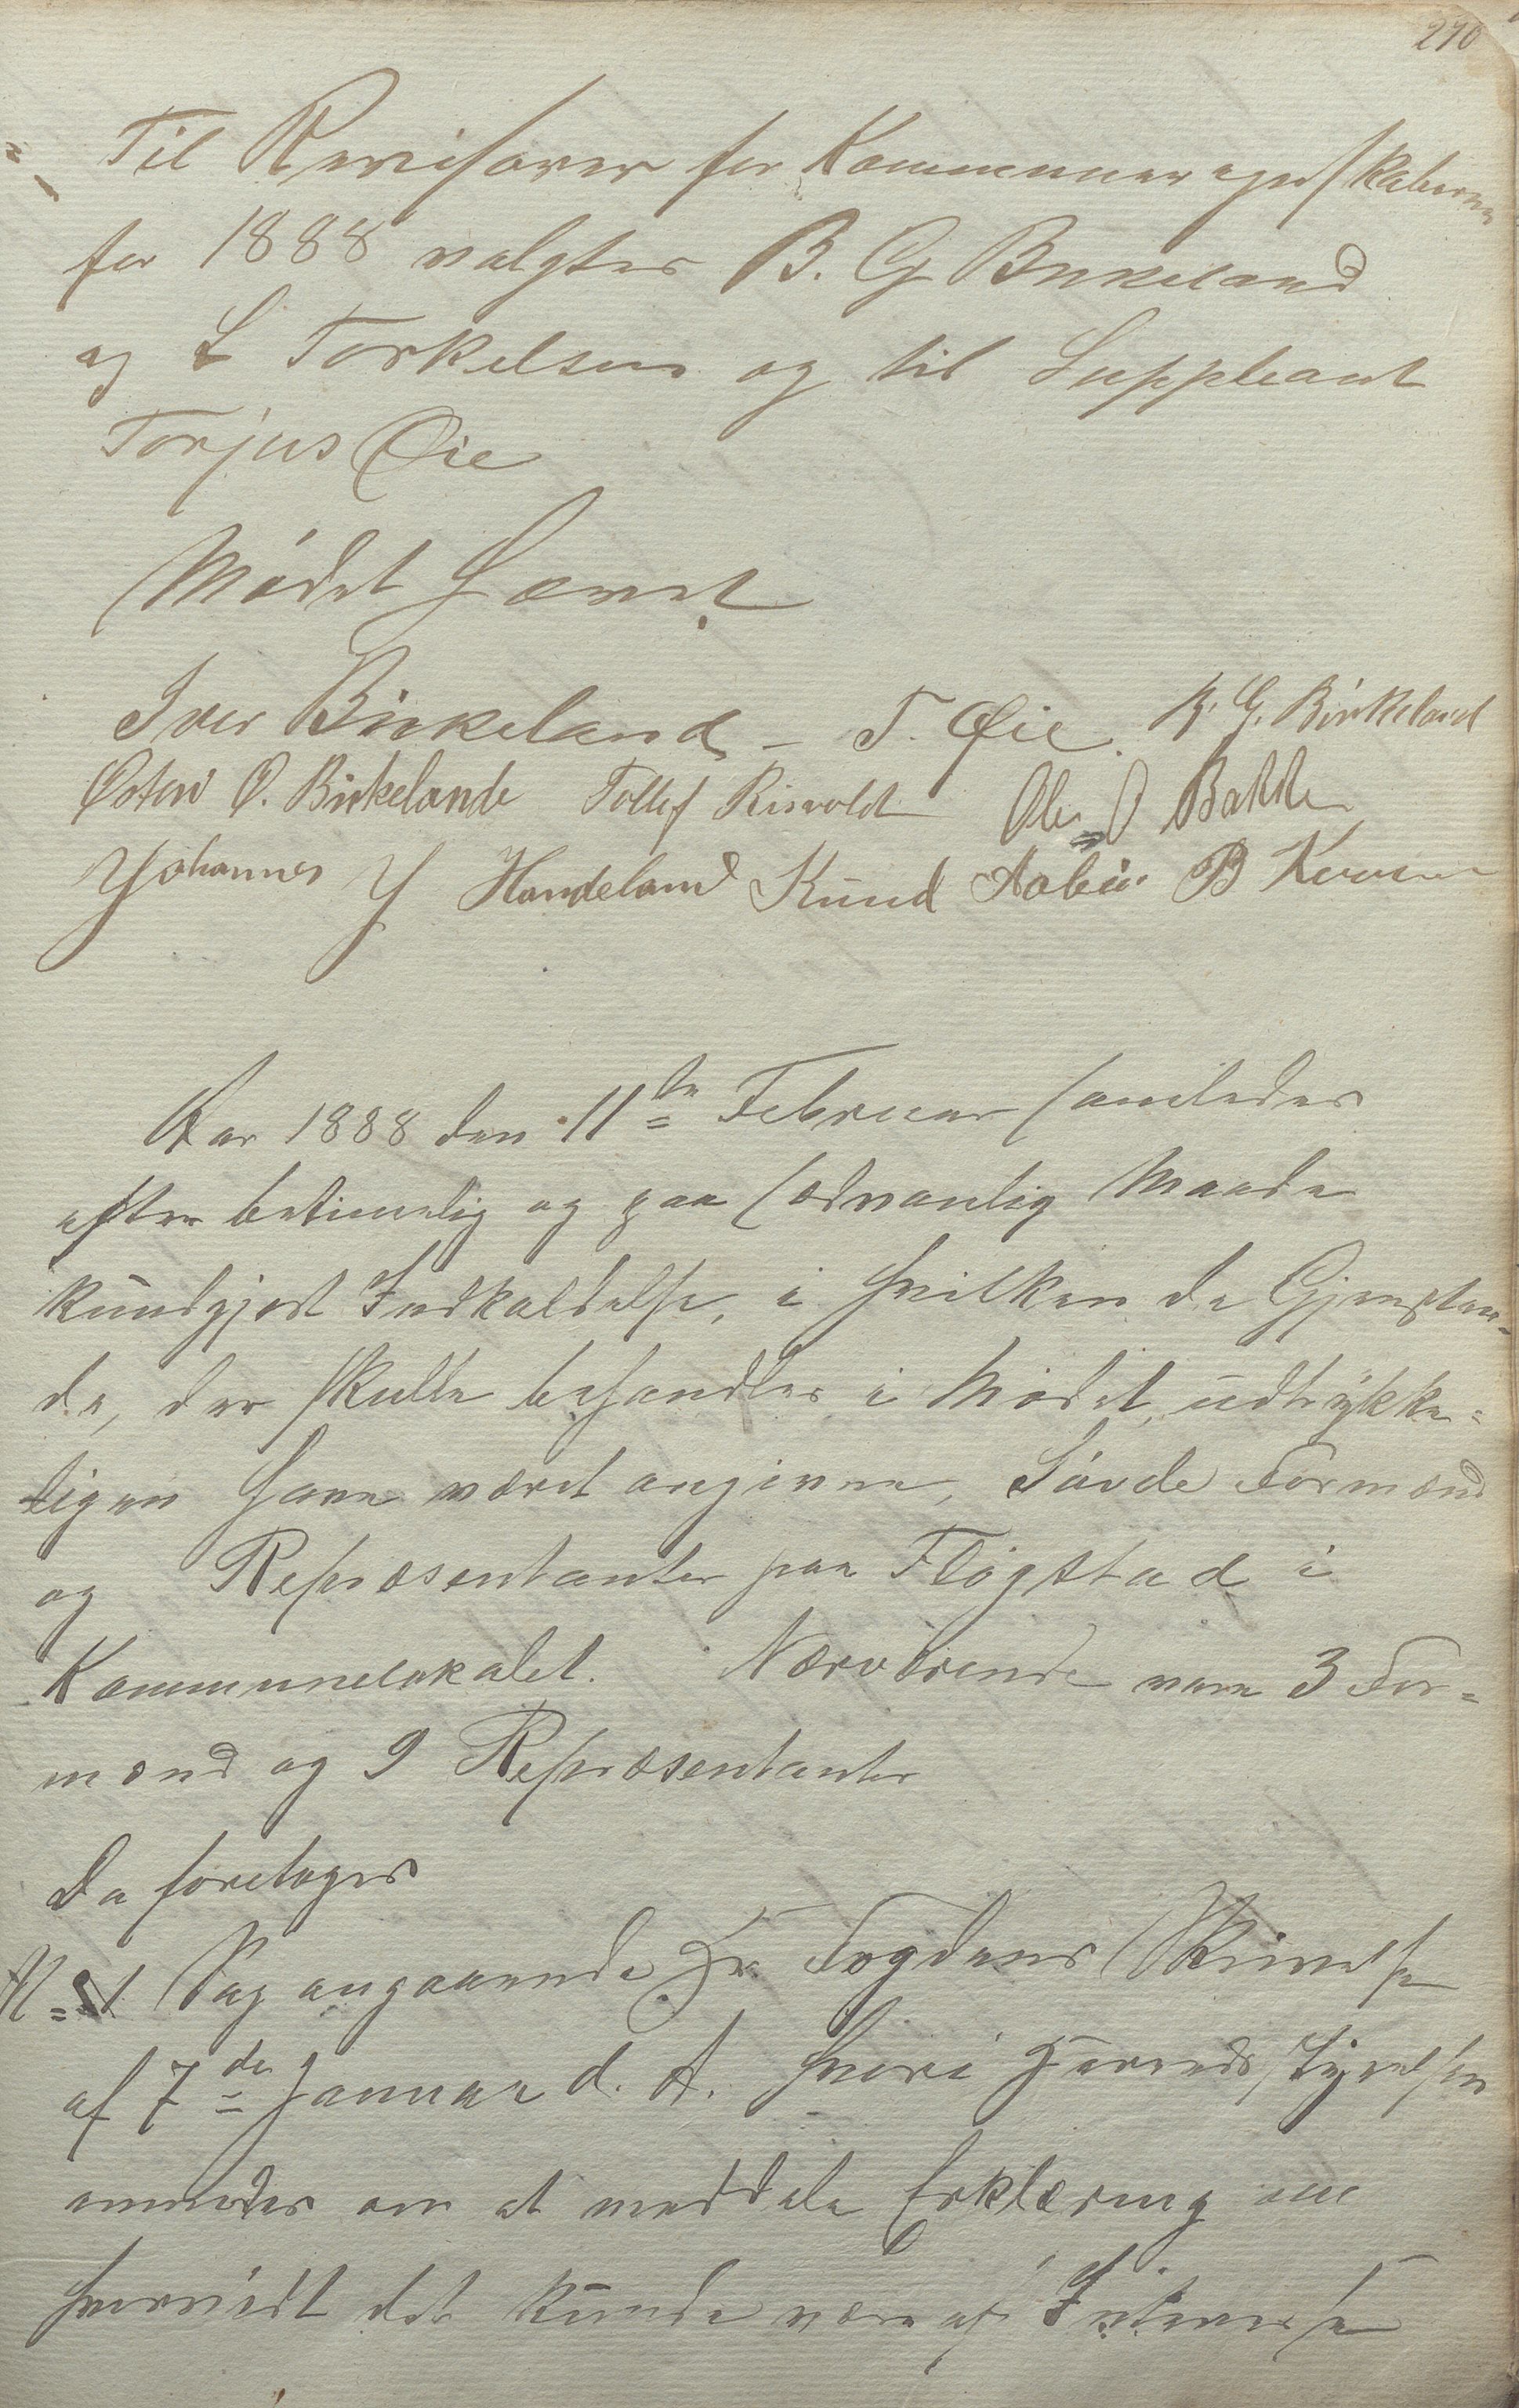 270
Til Revisorer for Kommuneregnskaberne
for 1888 valgtes B. G Birkeland
og L Torkelsen og til Suppleant
Torjus Øie
Mødet hævet
Iver Birkeland - T. Øie. B. G. Birkeland
Østen O. Birkelande Tollef Risvold Ole O Bakke
Johannes J Handeland Knud Aabøe B
Aar 1888 den 11te Februar samledes
efter betimelig og paa sædvanlig Maade
kundgjort Indkaldelse, i hvilken de Gjenstan-
de, der skulle behandles i Mødet, udtrykke-
ligen have været angivne, Søvde Formænd
og Repræsentanter paa Fløgstad i
Kommunelokalet. Nærværende vare 3 For-
mænd og 9 Repræsentanter
Da foretoges
N= 1 Sag angaaende Hr. Fogdens Skrivelse
af 7de Januar d. A. hvori Herredsstyrelsen
anmodes om at meddele Erklæring om
hvorvidt det kunde være af Interesse